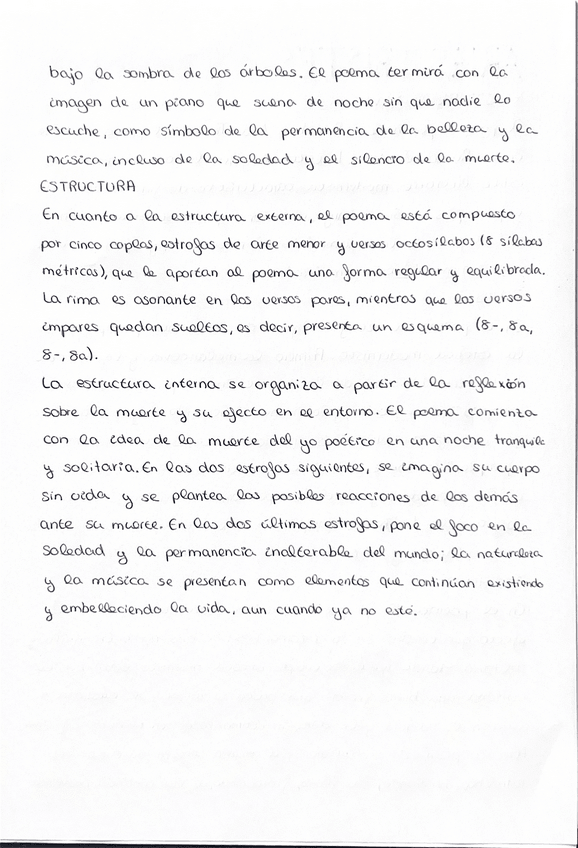 bajo la sombra de los árboles. El poema termirá con la
imagen de un piano que suena de noche sin que nadie lo
escuche, como símbolo de la permanencia de la belleza y la
música, incluso de la soledad y el silencio de la muerte.
ESTRUCTURA
En cuanto a la estructura externa, el poema está compuesto
por cinco coplas, estrofas de arte menor y versos octosílabos (8 sílabas
métricas), que le aportan al poema una forma regular y equilibrada.
La rima es asonante en los versos pares, mientras que los versos
impares quedan sueltos, es decir, presenta un esquema (8-, 8a,
8-, 8a).
La estructura interna se organiza a partir de la reflexión
sobre la muerte y su efecto en el entorno. El poema comienza
con la idea de la muerte del yo poético en una noche tranquila
y solitaria. En las dos estrofas siguientes, se imagina su cuerpo
sin vida y se plantea las posibles reacciones de los demás
ante su muerte. En las dos últimas estrofas, pone el foco en la
soledad y la permanencia inalterable del mundo; la naturaleza
y la música se presentan como elementos que continúan existiendo
y embelleciendo la vida, aun cuando ya no esté.